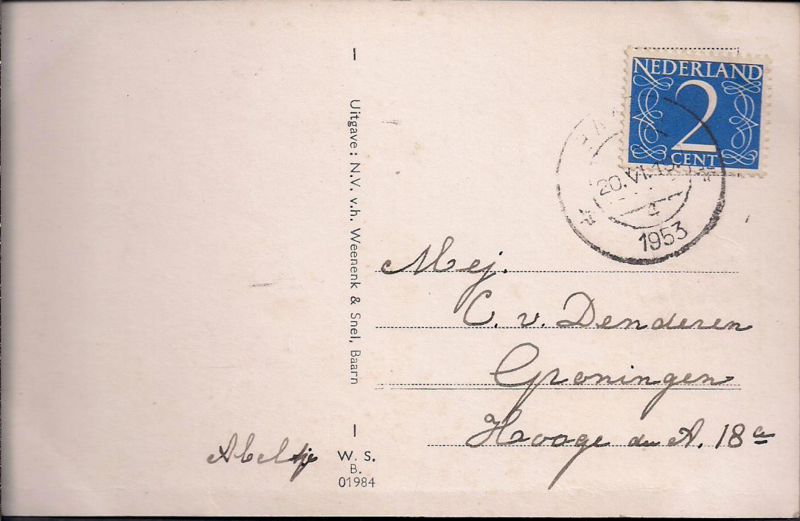 NEDERLAND
2
CENT
20.VI.
1953
Uitgave: N.V. v.h. Weenenk & Snel, Baarn
Mej.
C. v. Denderen
Groningen
Hooge der A. 18a
Abeltje
W. S.
B.
01984